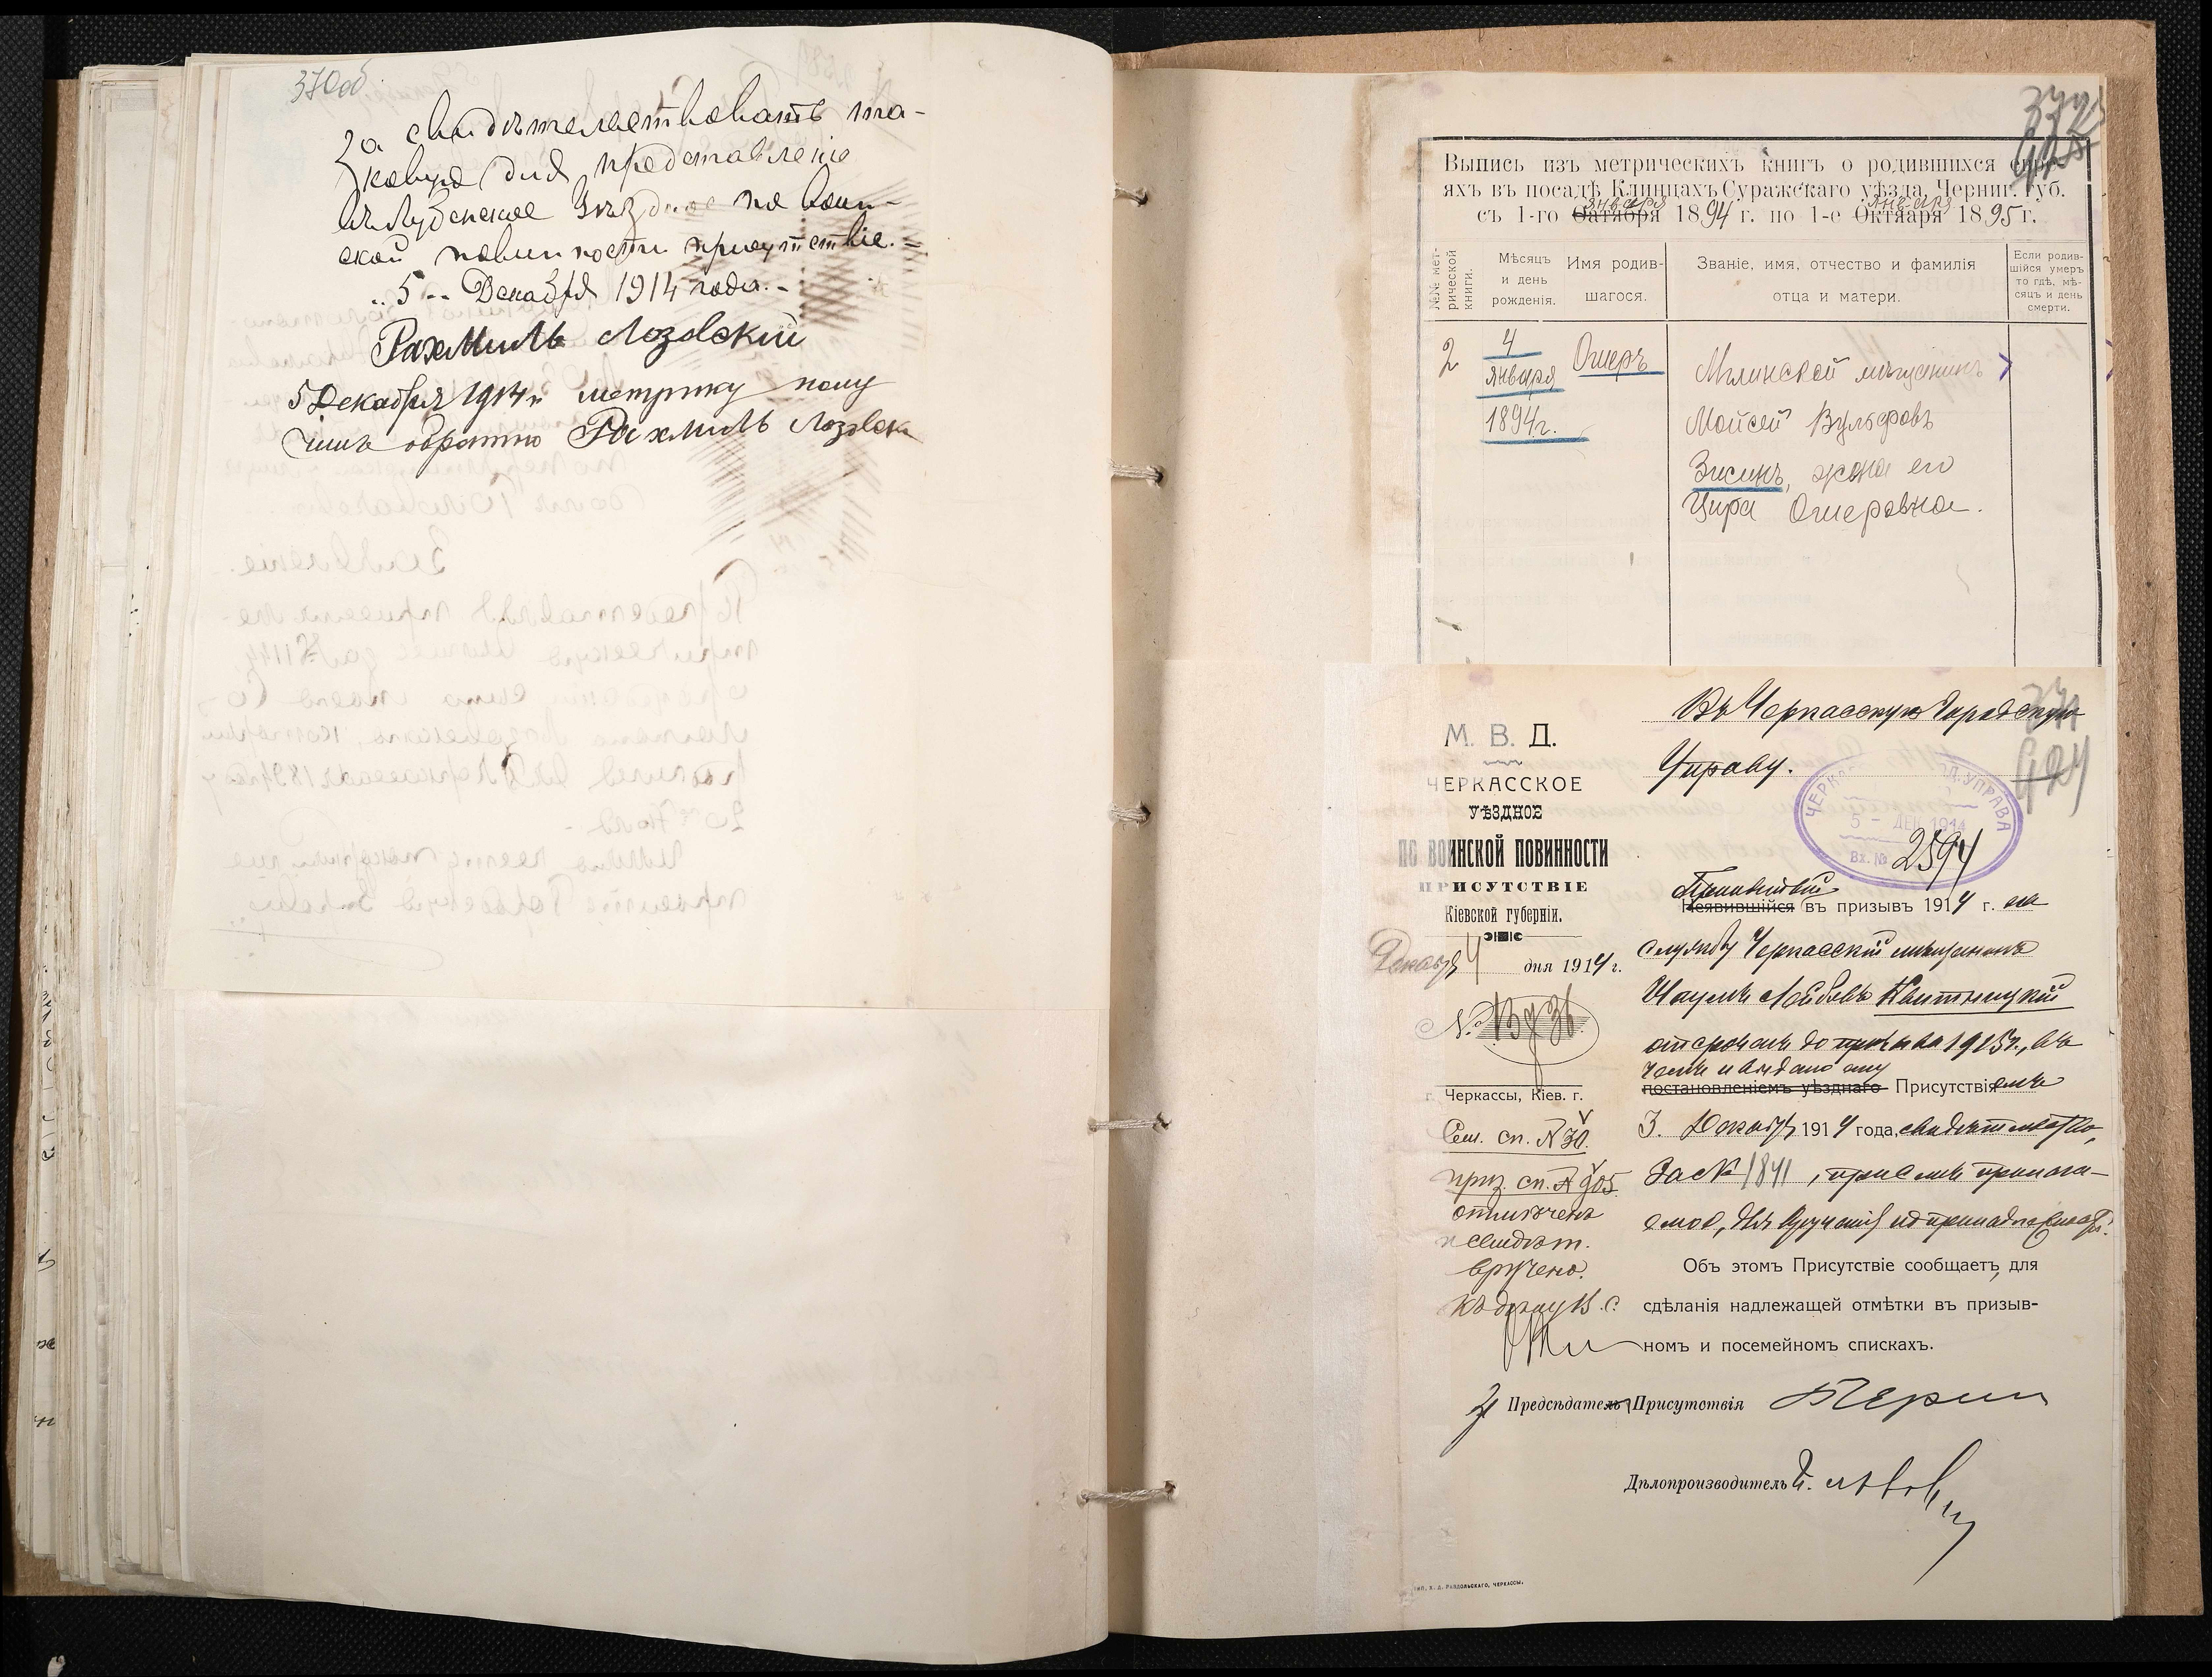 370об
За свидѣтельствовать та-
ковую для представленія
въ Лубенское Уѣздное по воин-
ской повинности присутствіе.=
"5" Декабря 1914 года.-
Рахмиль Лозовскій
5 Декабря 1914 г. метрику полу
чилъ обратно Рахмиль Лозовск
372
Выпись изъ метрическихъ книгъ о родившихся евре-
яхъ въ посадѣ Клинцахъ Суражскаго уѣзда, Черниг. Губ.
января января
съ 1-го Октября 1894 г. по 1-е Октяаря 1895 г.
№№ мет-
рической
книги.
Мѣсяцъ
и день
рожденія.
Имя родив-
шагося.
Званіе, имя, отчество и фамилія
отца и матери.
Если родив-
шійся умеръ
то гдѣ, мѣ-
сяцъ и день
смерти.
2
4
января
1894г.
Ошеръ
Мглинской мѣщанинъ
Мойсей Вульфовъ
Зисинъ, жена его
Цира Ошеровна.
М. В. Д.
ЧЕРКАССКОЕ
УѢЗДНОЕ
ПО ВОИНСКОЙ ПОВИННОСТИ
ПРИСУТСТВІЕ
Кіевской губерніи.
Декабря 4 дня 1914 г.
№
г. Черкассы, Кіев. г.
Сем. сп. № 30.
приз. сп. № 905
отмѣченъ
и свидѣт.
вручено.
Къ дѣлу В. С.
Въ Черкасскую Городскую
Управу.
ЧЕРКАС ОД. УПРАВА
5 - ДЕК 1914
Вх. № 2594
424
Принятый
Неявившійся въ призывъ 1914 г. на
службу Черкасскій мѣщанинъ
Наумъ Лейбовъ Квитницкій
отсроченъ до призыва 1915 г., въ
чемъ и выдано ему
постановленіемъ уѣзднаго Присутствіемъ
3. Декабря 1914 года, свидѣтельство,
за № 1841, при семъ прилага-
емое, для врученія по принадлежности.
Объ этомъ Присутствіе сообщаетъ, для
сдѣланія надлежащей отмѣтки въ призыв-
номъ и посемейномъ спискахъ.
За Предсѣдатель Присутствія
Дѣлопроизводитель
ТИП. Х. Д. РАВДОЛЬСКАГО, ЧЕРКАССЫ.